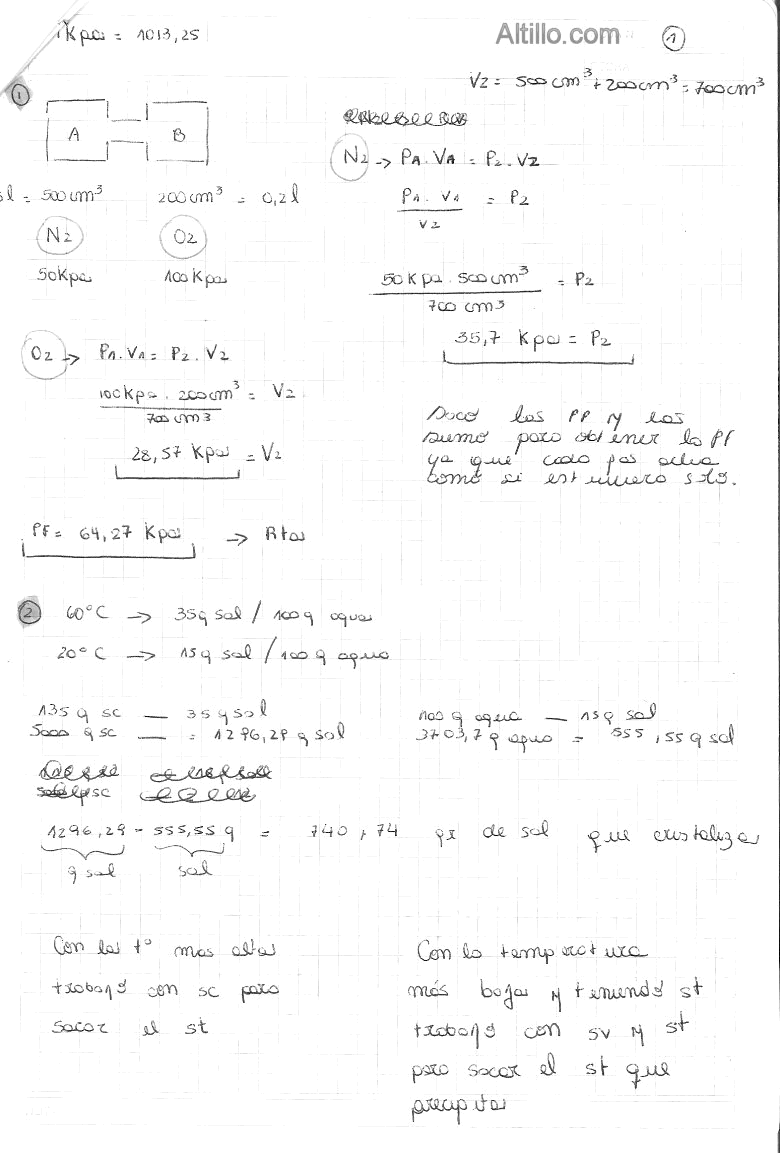 1Kpa = 1013,25
Altillo.com
1
V2 = 500cm³ + 200cm³ = 700cm³
1
A B
5l = 500cm³ 200cm³ = 0,2l
N2 O2
50Kpa 100Kpa
N2 → PA . VA = P2 . V2
PA . VA = P2
V2
50Kpa . 500cm³ = P2
700 cm3
35,7 Kpa = P2
O2 → PA.VA = P2.V2
100Kpa . 200cm³ = V2
700cm3
28,57 Kpa = V2
Saco las PP y las
sumo para obtener la PF
ya que cada gas actua
como si estuviera solo.
PF = 64,27 Kpa → Rta
2 60°C → 35g sal / 100g agua
20°C → 15g sal / 100g agua
135g sc — 35g sal
5000 g sc — = 1296,29 g sal
100g agua — 15g sal
3703,7g agua = 555,55g sal
1296,29 - 555,55g = 740,74 gr de sal que cristaliza
g sal sal
Con las t° mas altas
trabajo con sc para
sacar el st
Con la temperatura
más baja y teniendo st
trabajo con sv y st
para sacar el st que
precipita